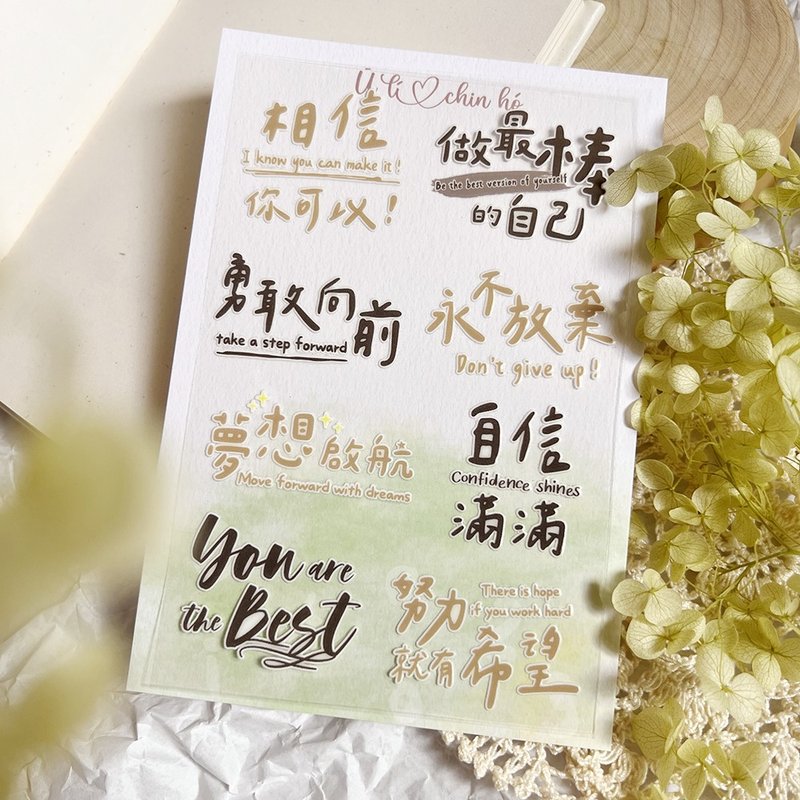 Ū lí chin hó
相信
I know you can make it!
你可以!
做最棒
Be the best version of yourself
的自己
勇敢向前
take a step forward
永不放棄
Don't give up!
夢想啟航
Move forward with dreams
自信
Confidence shines
滿滿
You are
the Best
努力
There is hope
if you work hard
就有希望